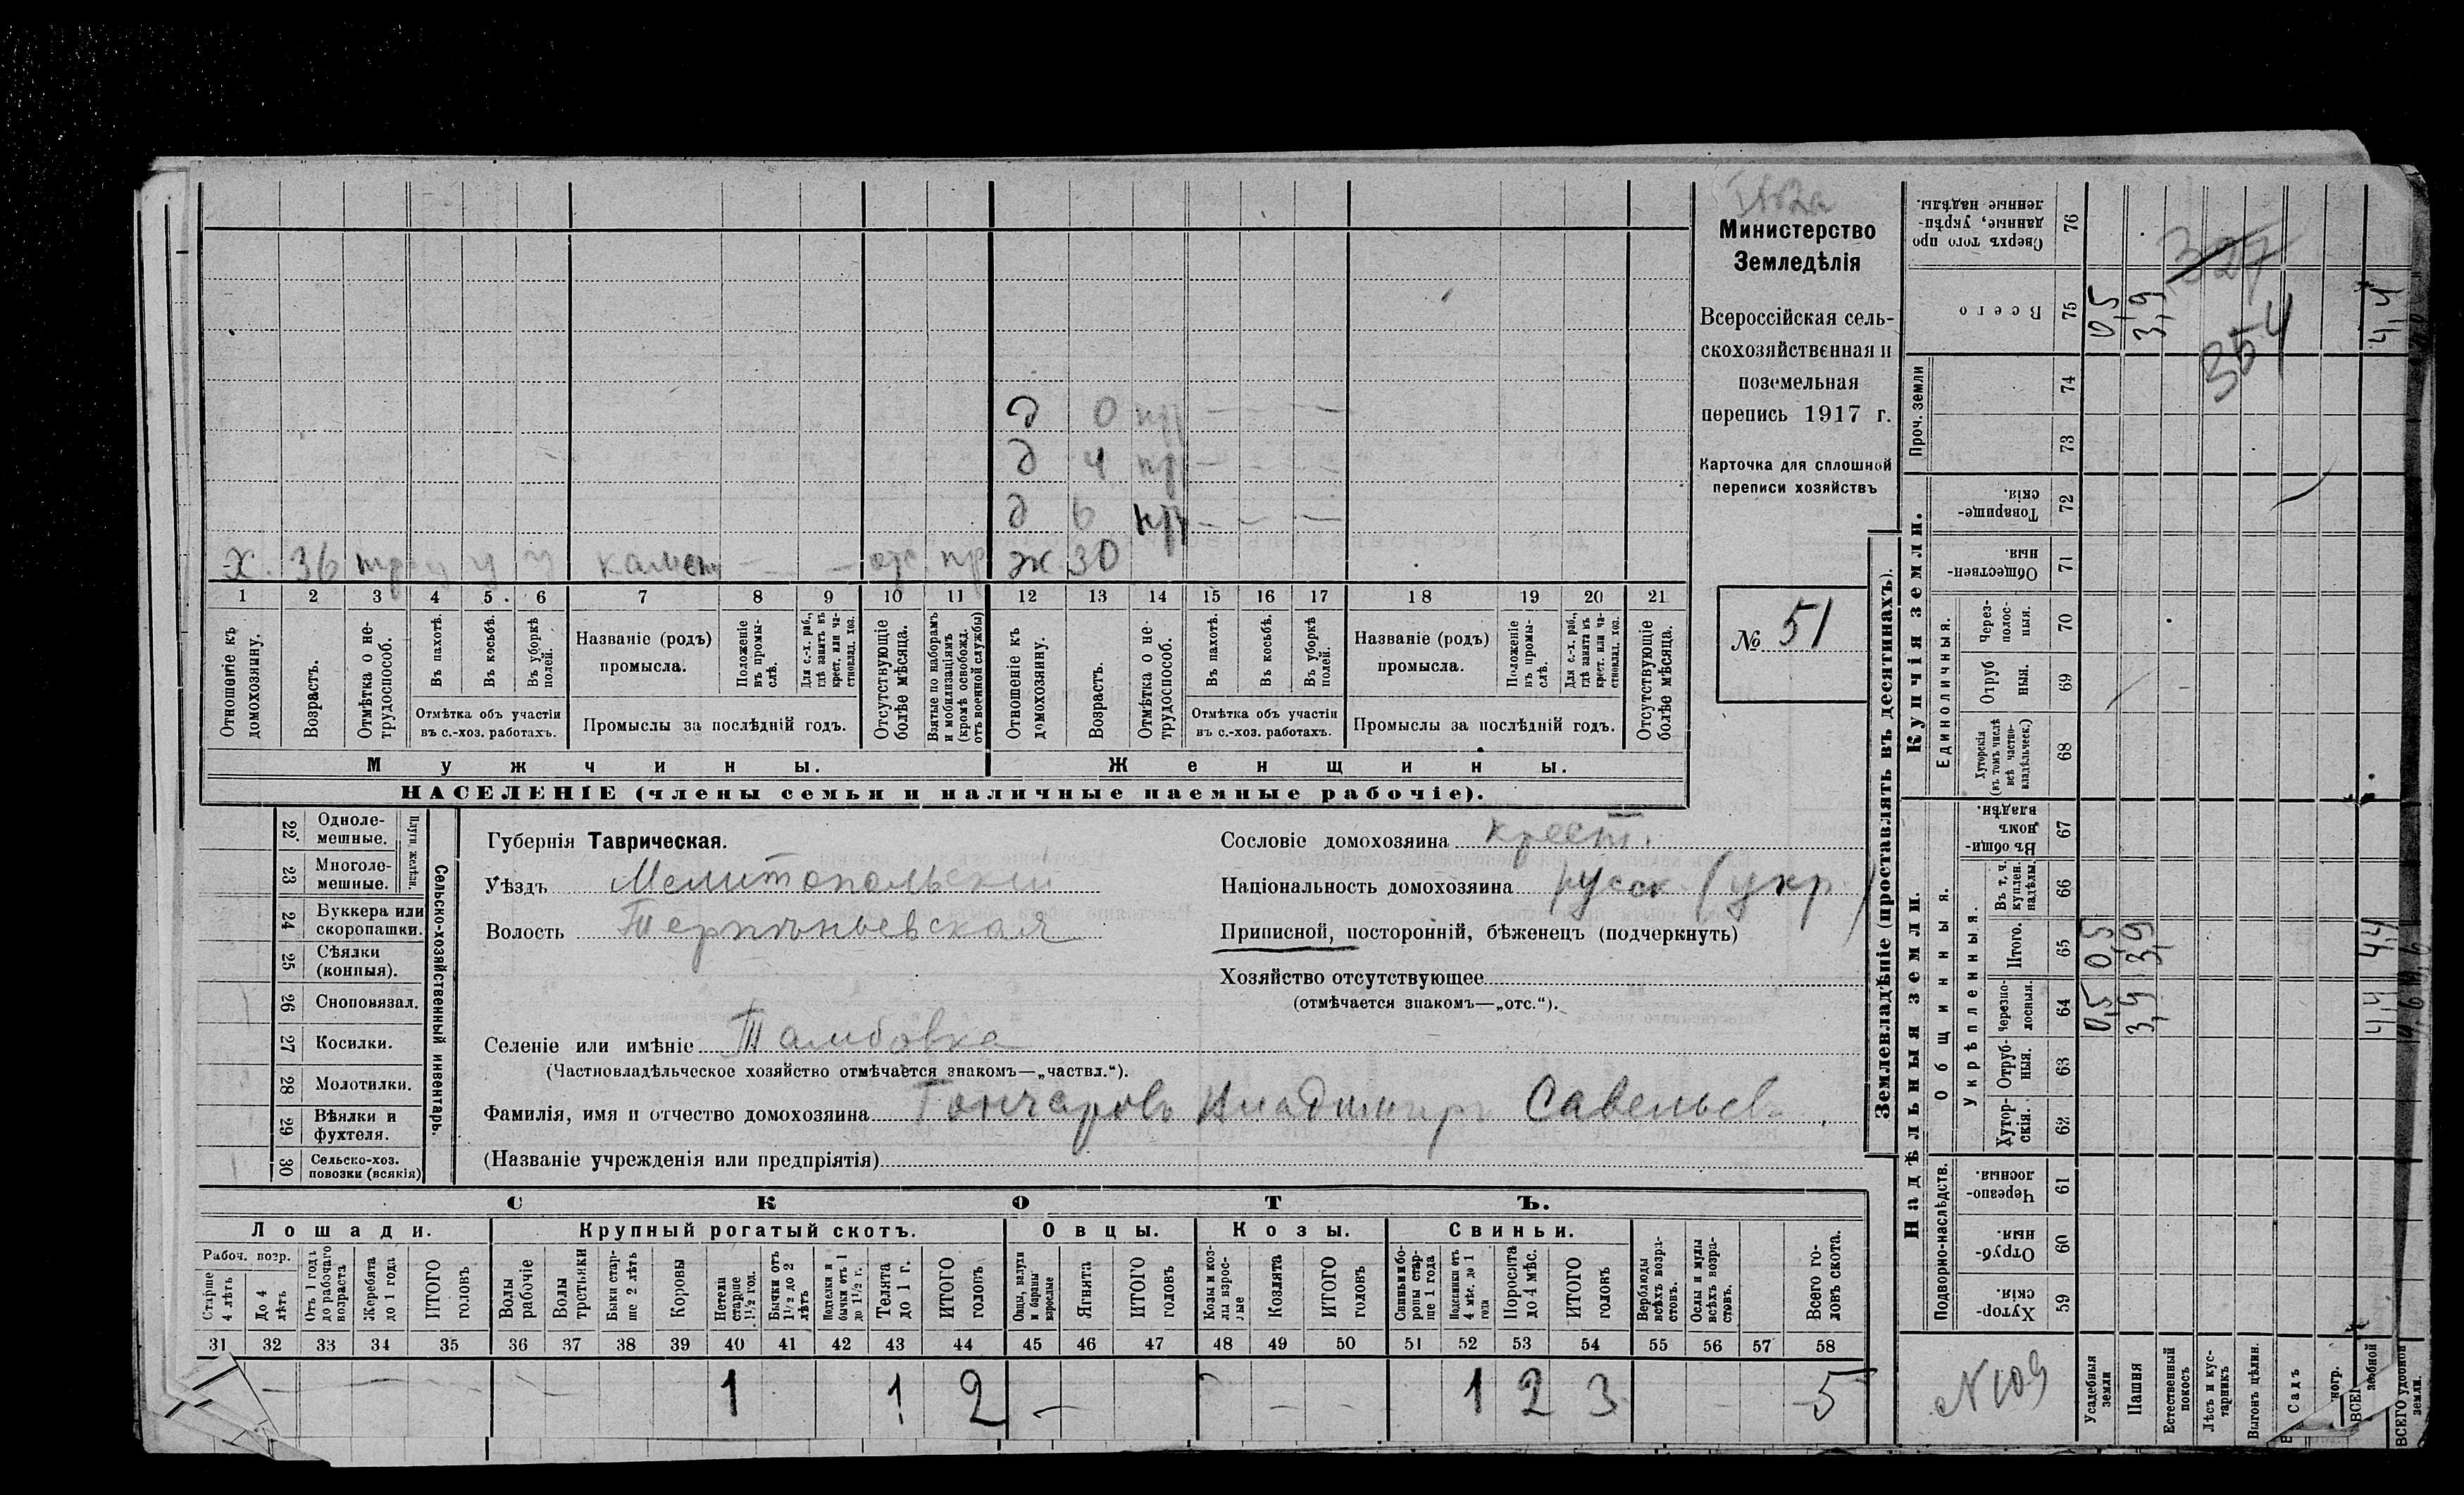 Министерство
Земледѣлія
Всероссійская сель-
скохозяйственная и
поземельная
перепись 1917 г.
Карточка для сплошной
переписи хозяйствъ
№ 51
д 0 нр — — —
д 4 нр — — —
д 6 нр — — —
х. 36 у у отс. пр ж 30
1 2 3 4 5 6 7 8 9 10 11 12 13 14 15 16 17 18 19 20 21
Отношеніе къ домохозяину.
Возрастъ.
Отмѣтка о не-трудоспособ.
Въ пахотѣ.
Въ косьбѣ.
Въ уборкѣ полей.
Отмѣтка объ участіи
въ с.-хоз. работахъ.
Названіе (родъ)
промысла.
Положеніе въ промы-слѣ.
Для с.-х. раб., гдѣ занятъ въ крест. или ча-стновлад. хоз.
Промыслы за послѣдній годъ.
Отсутствующіе болѣе мѣсяца.
Взятые по наборамъ и мобилизаціямъ (кромѣ освобожд. отъ военной службы)
Отношеніе къ домохозяину.
Возрастъ.
Отмѣтка о не-трудоспособ.
Въ пахотѣ.
Въ косьбѣ.
Въ уборкѣ полей.
Отмѣтка объ участіи
въ с.-хоз. работахъ.
Названіе (родъ)
промысла.
Положеніе въ промы-слѣ.
Для с.-х. раб., гдѣ занята въ крест. или ча-стновлад. хоз.
Промыслы за послѣдній годъ.
Отсутствующіе болѣе мѣсяца.
Мужчины. Женщины.
НАСЕЛЕНІЕ (члены семьи и наличные наемные рабочіе).
Сельско-хозяйственный инвентарь.
Плуги желѣзн.
22 Однолемешные.
23 Многолемешные.
24 Буккера или скоропашки.
25 Сѣялки (конныя).
26 Сноповязал.
27 Косилки.
28 Молотилки.
29 Вѣялки и фухтеля.
30 Сельско-хоз. повозки (всякія)
Губернія Таврическая.
Уѣздъ Мелитопольскій
Волость Терпѣньевская
Сословіе домохозяина крест.
Національность домохозяина русск. (укр.)
Приписной, посторонній, бѣженецъ (подчеркнуть)
Хозяйство отсутствующее
(отмѣчается знакомъ—„отс.“).
Селеніе или имѣніе Тамбовка
(Частновладѣльческое хозяйство отмѣчается знакомъ—„частвл.“).
Фамилія, имя и отчество домохозяина Гончаровъ Владимиръ Савельев
(Названіе учрежденія или предпріятія)
СКОТЪ.
Лошади. Крупный рогатый скотъ. Овцы. Козы. Свиньи.
Рабоч. возр.
Старше 4 лѣтъ
До 4 лѣтъ
Отъ 1 года до рабочаго возраста
Жеребята до 1 года
ИТОГО головъ
Волы рабочіе
Волы третьяки
Быки стар-ше 2 лѣтъ
Коровы
Нетели старше 1½ год.
Бычки отъ 1½ до 2 лѣтъ
Подтелки и бычки отъ 1 до 1½ г.
Телята до 1 г.
ИТОГО головъ
Овцы, валухи и бараны взрослые
Ягнята
ИТОГО головъ
Козы и коз-лы взрос-лые
Козлята
ИТОГО головъ
Свиньи и бо-ровы стар-ше 1 года
Подсвинки отъ 4 мѣс. до 1 года
Поросята до 4 мѣс.
ИТОГО головъ
Верблюды всѣхъ возра-стовъ.
Ослы и мулы всѣхъ возра-стовъ.
Всего го-ловъ скота.
31 32 33 34 35 36 37 38 39 40 41 42 43 44 45 46 47 48 49 50 51 52 53 54 55 56 57 58
1 1 2 — 1 2 3 5
Землевладѣніе (проставлять въ десятинахъ).
Надѣльныя земли. Купчія земли.
Подворно-наслѣдств.
Общинныя.
Укрѣпленныя.
Единоличныя.
Проч. земли
59 Хутор-скія.
60 Отруб-ныя.
61 Черезпо-лосныя.
62 Хутор-скія.
63 Отруб-ныя.
64 Черезпо-лосныя.
65 Итого.
66 Въ т. ч. куплен. надѣлы
67 Въ общин-номъ владѣн.
68 Хуторскія (въ томъ числѣ всѣ частно-владѣльческ.)
69 Отруб ныя.
70 Через-полос-ныя.
71 Обществен-ныя.
72 Товарище-скія.
73
74
75 Всего
76 Сверхъ того про данные, укрѣп-ленные надѣлы.
Усадебныя земли 0,5 0,5 0,5
Пашня 3,9 3,9 3,9
Естественный покосъ
Лѣсъ и кус-тарникъ
Выгонъ цѣлин.
Садъ
4,4 4,4 4,4
ВСЕГО удобной земли.
327
354
N 109